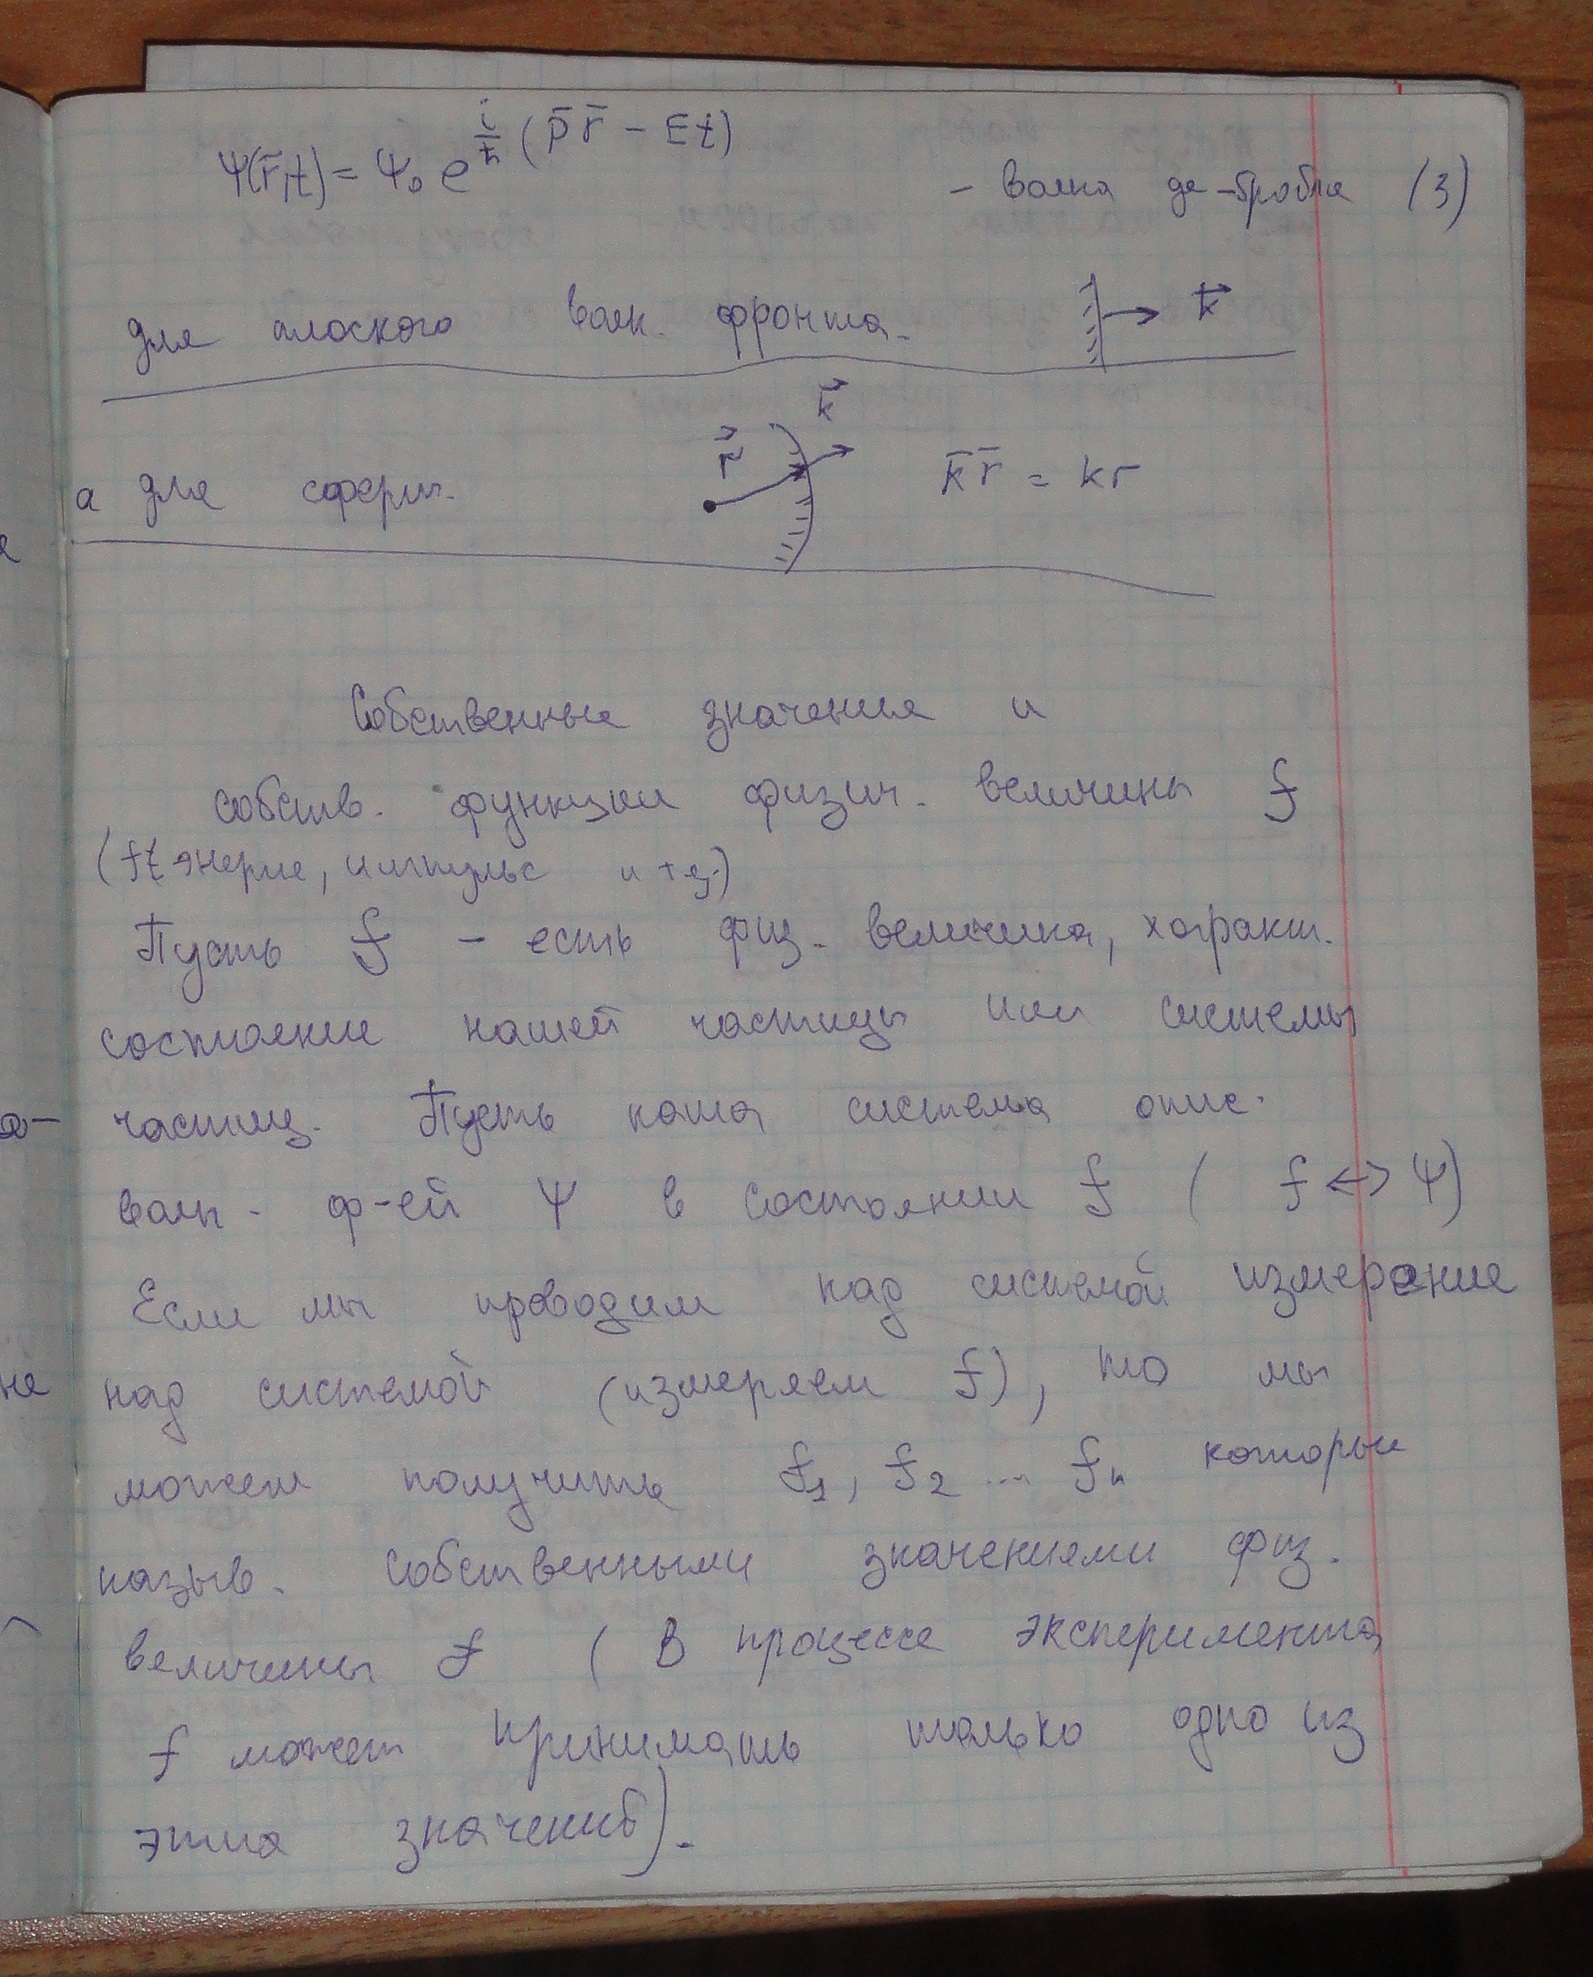 Ψ(r̄,t) = Ψ₀ e^{i/ħ (p̄ r̄ − Et)} – волна де-бройля (3)
для плоского волн. фронта. k⃗
r⃗ k⃗
а для сферич. k̄ r̄ = kr
Собственные значения и
собств. функции физич. величины f
(f энергие, импульс и т.д.)
Пусть f – есть физ. величина, характ.
состояние нашей частицы или системы
частиц. Пусть наша система опис.
волн. ф-ей Ψ в состоянии f ( f ↔ Ψ)
Если мы проводим над системой измерение
над системой (измеряем f), то мы
можем получить f₁, f₂ ... fₙ которые
назыв. собственными значениями физ.
величины f ( В процессе эксперимента
f может принимать только одно из
этих значений).